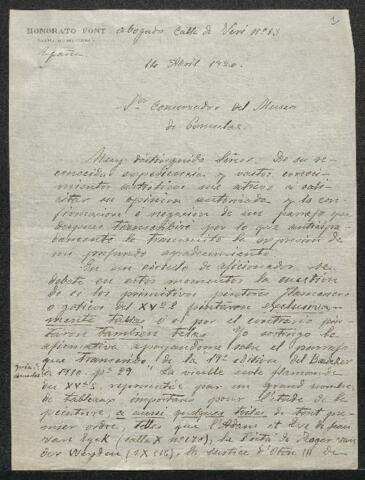 HONORATO FONT Abogado Calle de Verí nº 13
España
14 Abril 1920.
Sr. Conservador del Museo
de Bruselas.
Muy distinguido Señor: De su re-
conocida experiencia y vastos conoci-
mientos artísticos me atrevo a soli-
citar su opinion autorizada y la con-
firmacion o negacion de un parrafo que
despues transcribiré por lo que anticipa-
damente le transmito la expresion de
mi profundo agradecimiento.
En un circulo de aficionados se
debate en estos momentos la cuestion
de si los primitivos pintores flamencos
o goticos del XVº S. pintaron exclusiva-
mente tablas o si por el contrario pin-
taron tambien telas. Yo sostengo la
afirmativa apoyandome sobre el parrafo
que transcribo de la 19ª edition del Bædeker
Bruselas
a 1910 - pº 29 " La vieille école flamande
du XVº S, représentée par un grand nombre
de tableaux importants pour l'étude de la
peinture, a aussi quelques toiles de tout pre-
mier ordre, telles que l'Adam et Eve de Jean
van Eyck (salle X nº 170), la Pietà de Roger van
der Weyden (IX 515), la Justice d'Oton III de